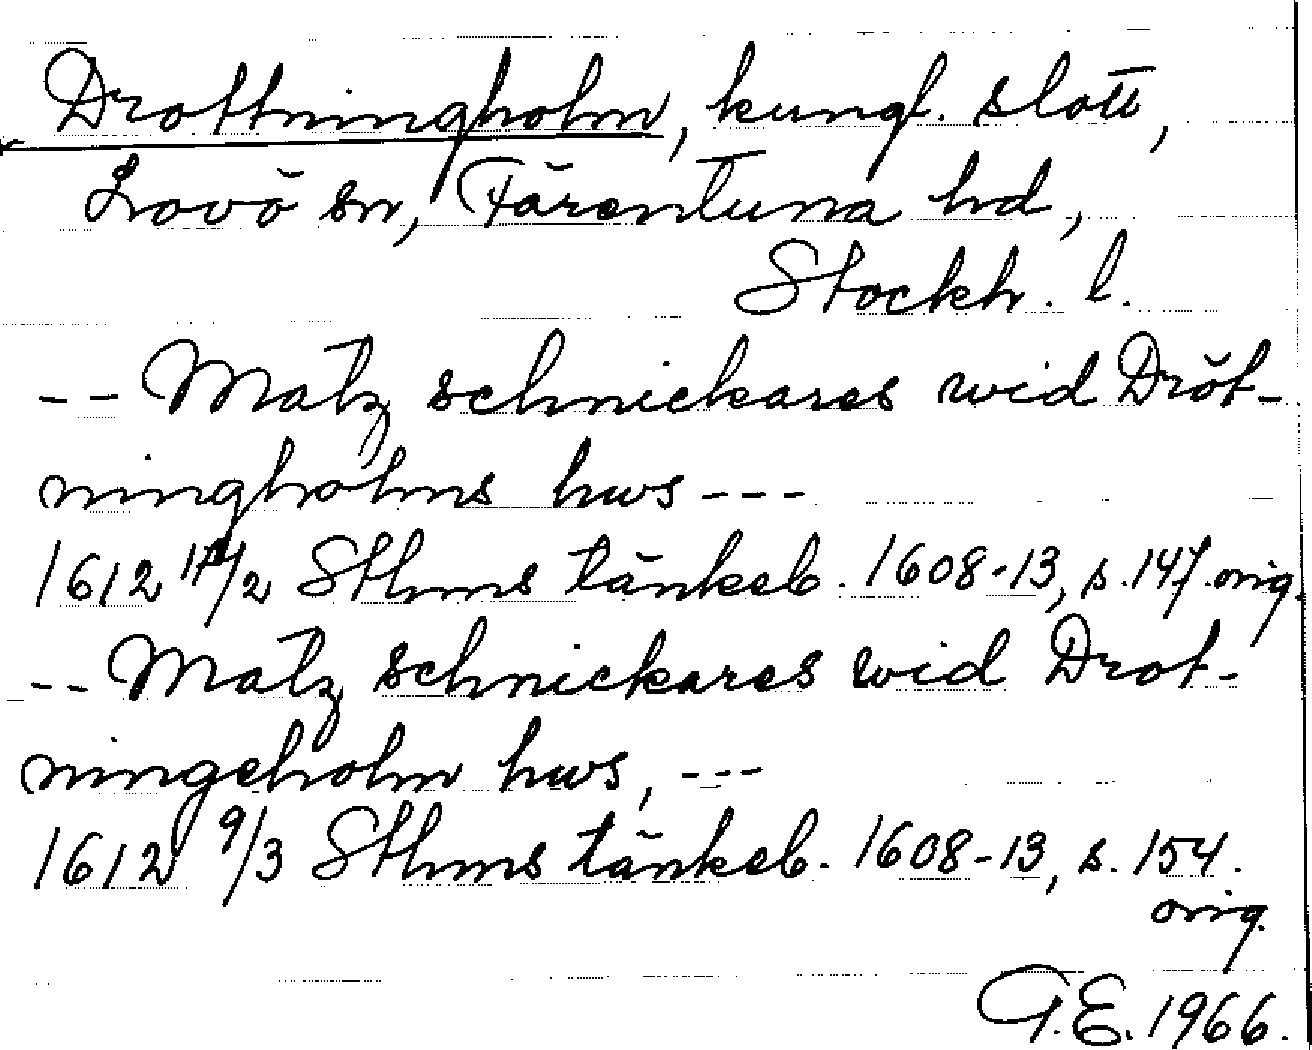 Drottningholm, kungl. slott,
Lovö sn, Färentuna hd,
Stockh. l.
-- Matz schnickares wid Dröt-
ningholms hws ---
1612 /2 Sthms tänkeb. 1608-13, s. 147. orig.
-- Matz schnickares wid Drot-
ningeholm hws, ---
1612 9/3 Sthms tänkeb. 1608-13, s. 154.
orig.
G.E. 1966.